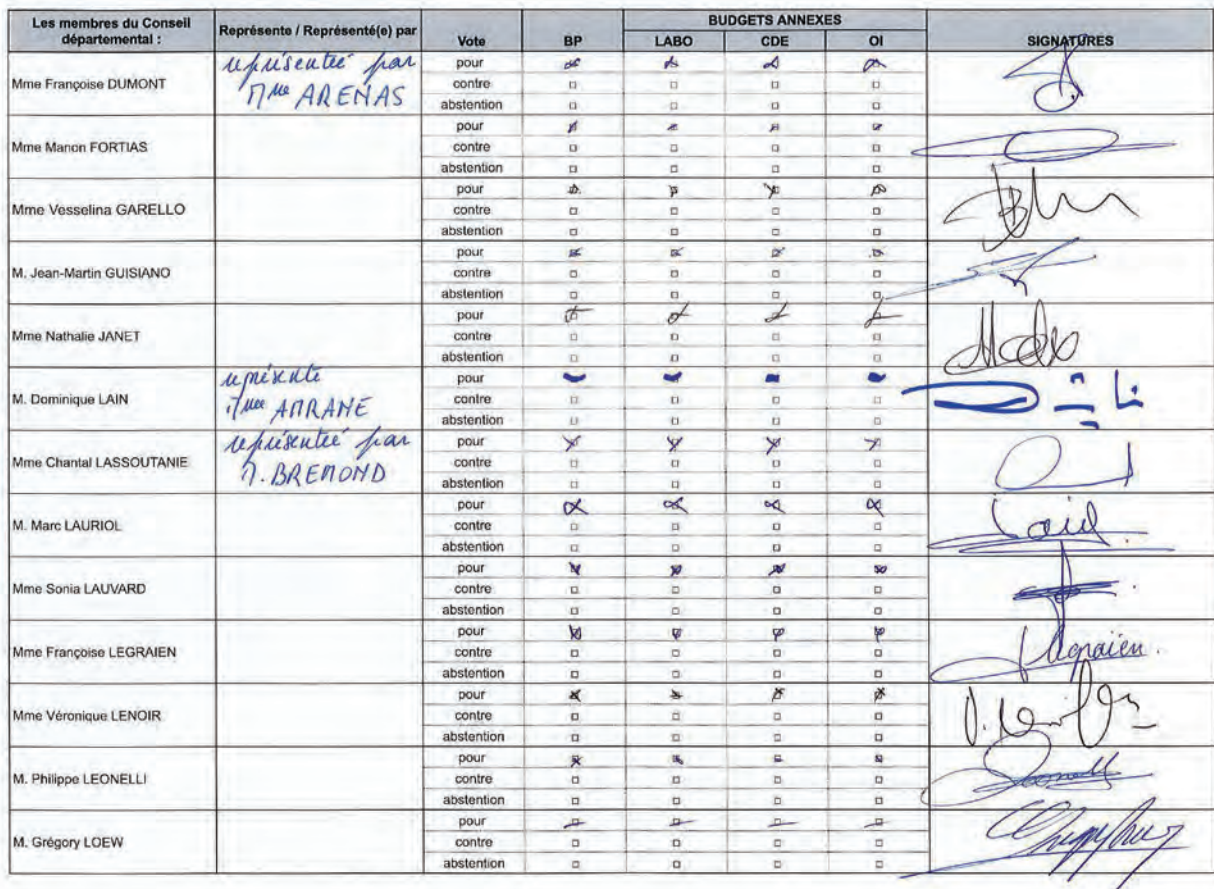 Les membres du Conseil départemental :
Représente / Représenté(e) par
Vote
BP
BUDGETS ANNEXES
LABO
CDE
OI
SIGNATURES
Mme Françoise DUMONT
représentée par
Mme ARENAS
pour
contre
abstention
Mme Manon FORTIAS
pour
contre
abstention
Mme Vesselina GARELLO
pour
contre
abstention
M. Jean-Martin GUISIANO
pour
contre
abstention
Mme Nathalie JANET
pour
contre
abstention
M. Dominique LAIN
représente
Mme AMRANE
pour
contre
abstention
Mme Chantal LASSOUTANIE
représentée par
M. BREMOND
pour
contre
abstention
M. Marc LAURIOL
pour
contre
abstention
Mme Sonia LAUVARD
pour
contre
abstention
Mme Françoise LEGRAIEN
pour
contre
abstention
Legraien.
Mme Véronique LENOIR
pour
contre
abstention
M. Philippe LEONELLI
pour
contre
abstention
M. Grégory LOEW
pour
contre
abstention